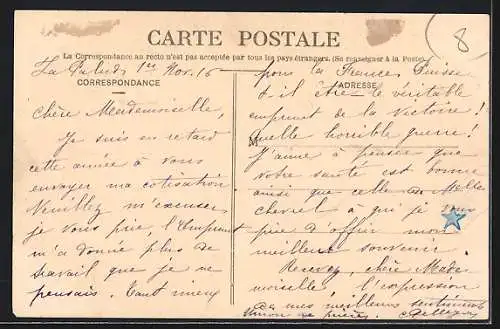 CARTE POSTALE
8
La Correspondance au recto n'est pas acceptée par tous les pays étrangers. (Se renseigner à la Poste)
CORRESPONDANCE
La Palud, 1er Nov. 16
Chère Mademoiselle,
Je suis en retard
cette année à vous
envoyer ma cotisation
Veuillez m'excuser
je vous prie, l'Emprunt
m'a donné plus de
travail que je ne
pensais. Tant mieux
ADRESSE
pour la France, Puisse
t-il être le véritable
emprunt de la Victoire!
Quelle horrible guerre!
M
J'aime à penser que
votre santé est bonne
ainsi que celle de Melle
à qui je vous
prie d'offrir mon
meilleur souvenir.
Recevez, chère Made
moiselle, l'expression
de mes meilleurs sentiments
Union de prières.